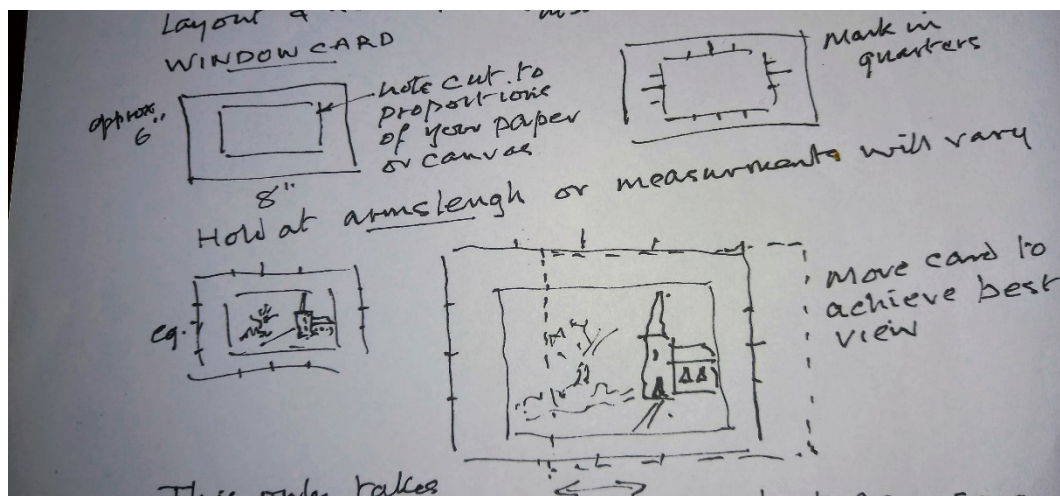 Layout &
WINDOW CARD
approx.
6"
8"
hole cut to
proportions
of your paper
or canvas
Mark in
quarters
Hold at armslengh or measurments will vary
eg.
Move card to
achieve best
view
This only takes